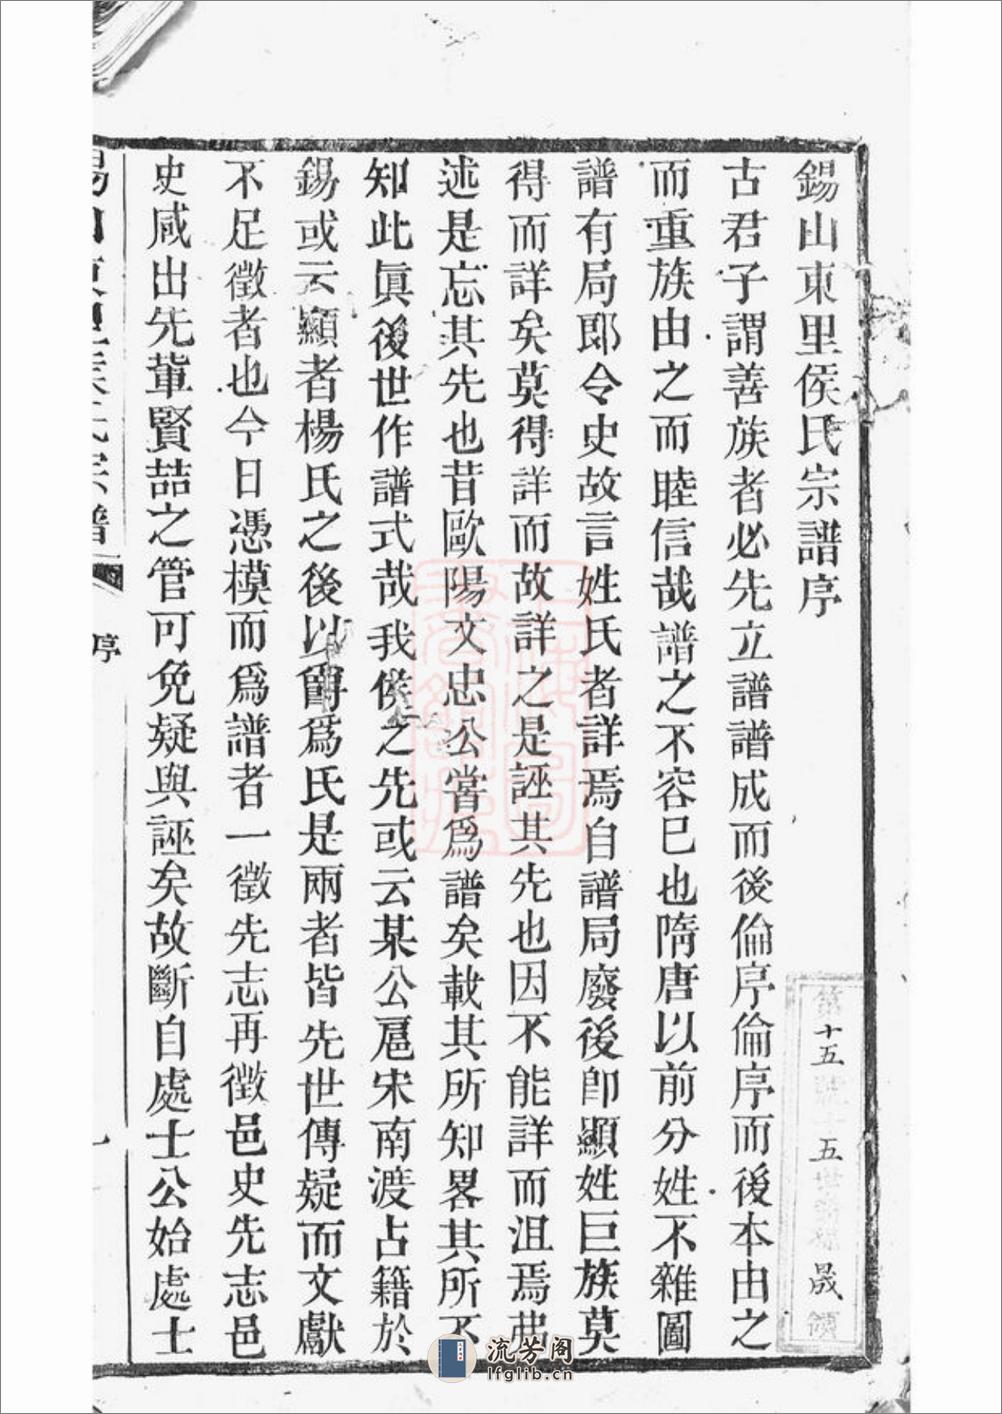 錫山東里侯氏宗譜序
古君子謂善族者必先立譜譜成而後倫序倫序而後本由之
而重族由之而睦信哉譜之不容已也隋唐以前分姓不雜圖
譜有局郎令史故言姓氏者詳焉自譜局廢後卽顯姓巨族莫
得而詳矣莫得詳而故詳之是誣其先也因不能詳而沮焉弗
述是忘其先也昔歐陽文忠公嘗爲譜矣載其所知畧其所不
知此眞後世作譜式哉我侯之先或云某公扈宋南渡占籍於
錫或云顯者楊氏之後以爵爲氏是兩者皆先世傳疑而文獻
不足徵者也今日憑模而爲譜者一徵先志再徵邑史先志邑
史咸出先軰賢喆之管可免疑與誣矣故斷自處士公始處士
錫山東里侯氏宗譜 序 一
第十五號十五世 晟領
流芳阁
lfglib.cn